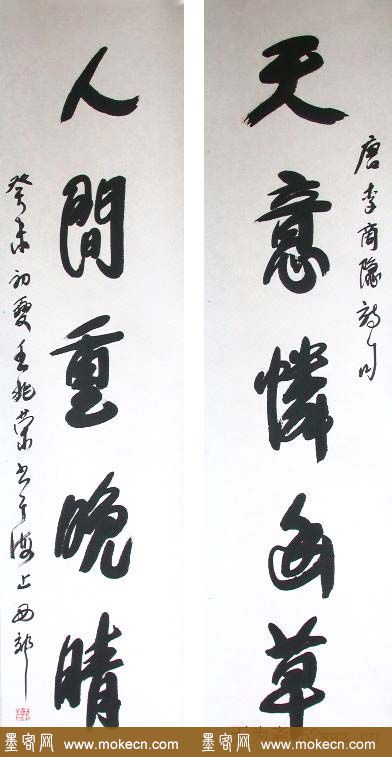 唐李商隱詩句
天意憐幽草
人間重晚晴
癸未初夏王兆荣书于海上西郊
墨客网 www.mokecn.com
墨客网 www.mokecn.com